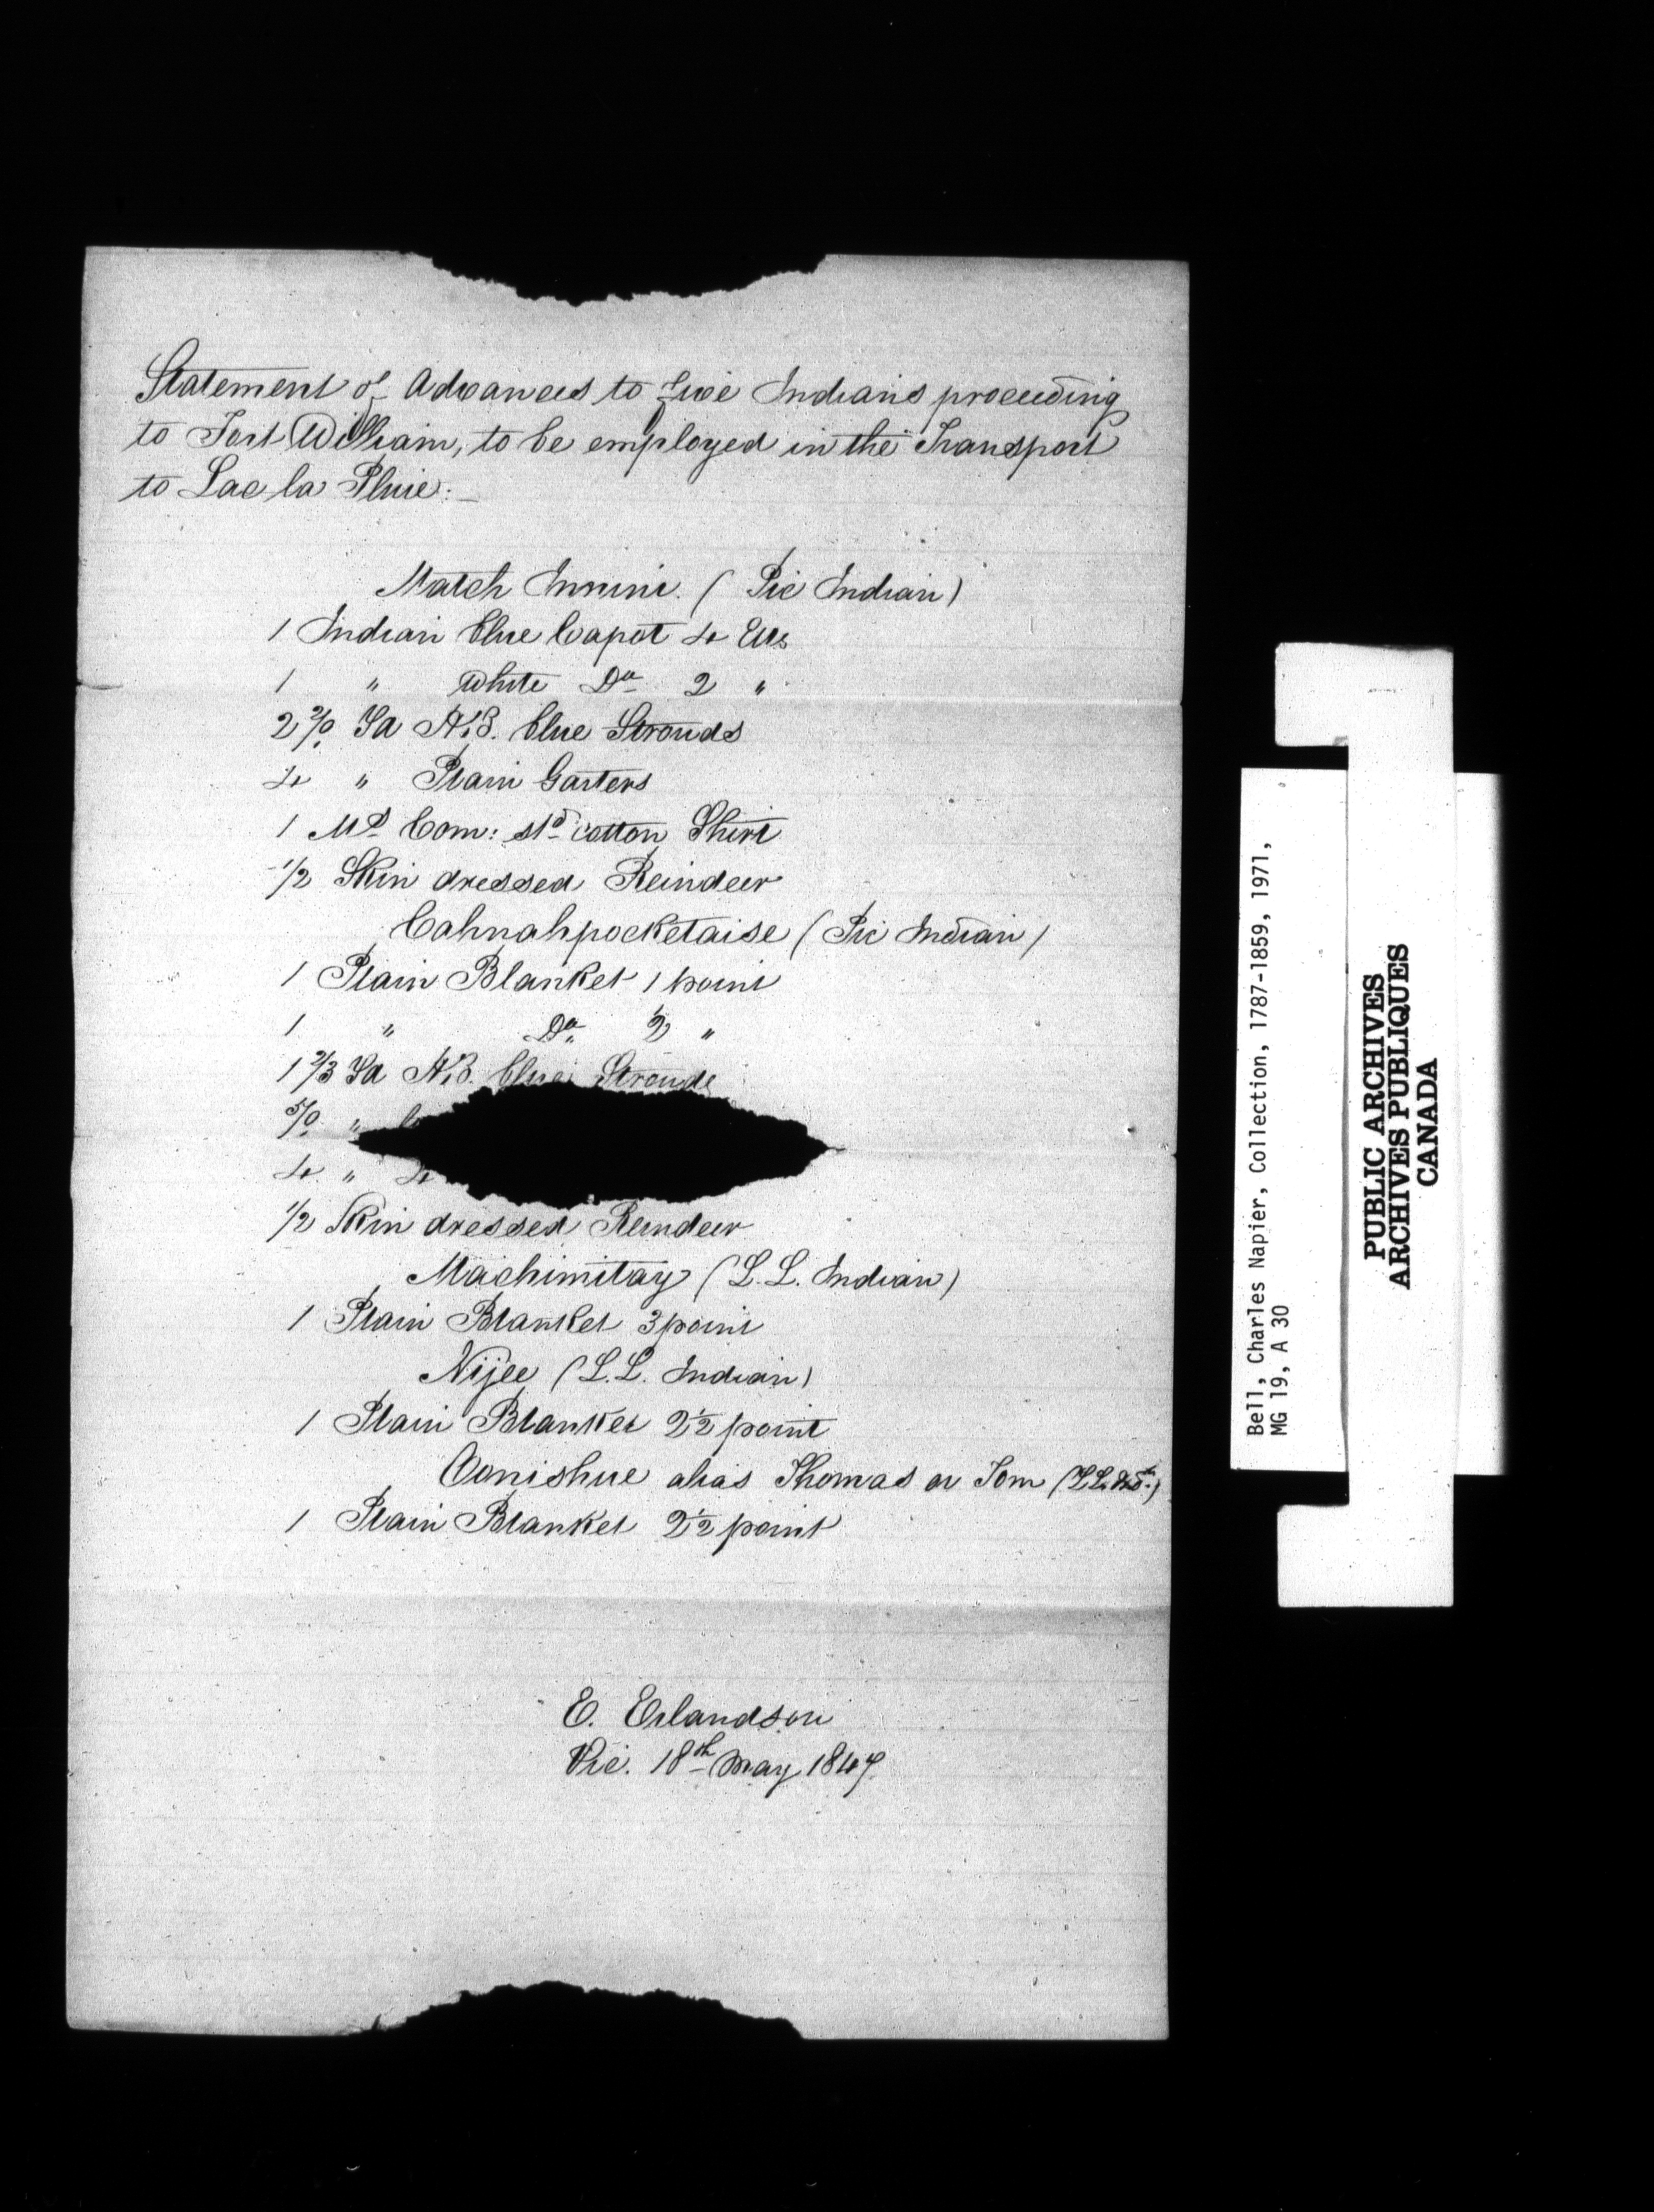 Statement of Advances to five Indians proceeding
to Fort William, to be employed in the Transport
to Lac la Pluie:—
Match Innini. (Pic Indian)
1 Indian blue Capot 4 Ells
1 " White Do 2 "
2 2/9 Yd H.B. blue Strouds
4 " Plain Garters
1 Ms Com: std cotton Shirt
1/2 Skin dressed Reindeer
Cahnahpocketaise (Pic Indian)
1 Plain Blanket 1 point
1 " Do 2 "
1 2/3 Yd H.B. blue Strouds
5/9 "
4 "
1/2 Skin dressed Reindeer
Machimitay (L.L. Indian)
1 Plain Blanket 3 point
Nijee (L.L. Indian)
1 Plain Blanket 2 1/2 point
Oonishue alias Thomas or Tom (L.L. Ind.)
1 Plain Blanket 2 1/2 point
E. Erlandson
Pic. 18th May 1847
Bell, Charles Napier, Collection, 1787-1859, 1971,
MG 19, A 30
PUBLIC ARCHIVES
ARCHIVES PUBLIQUES
CANADA